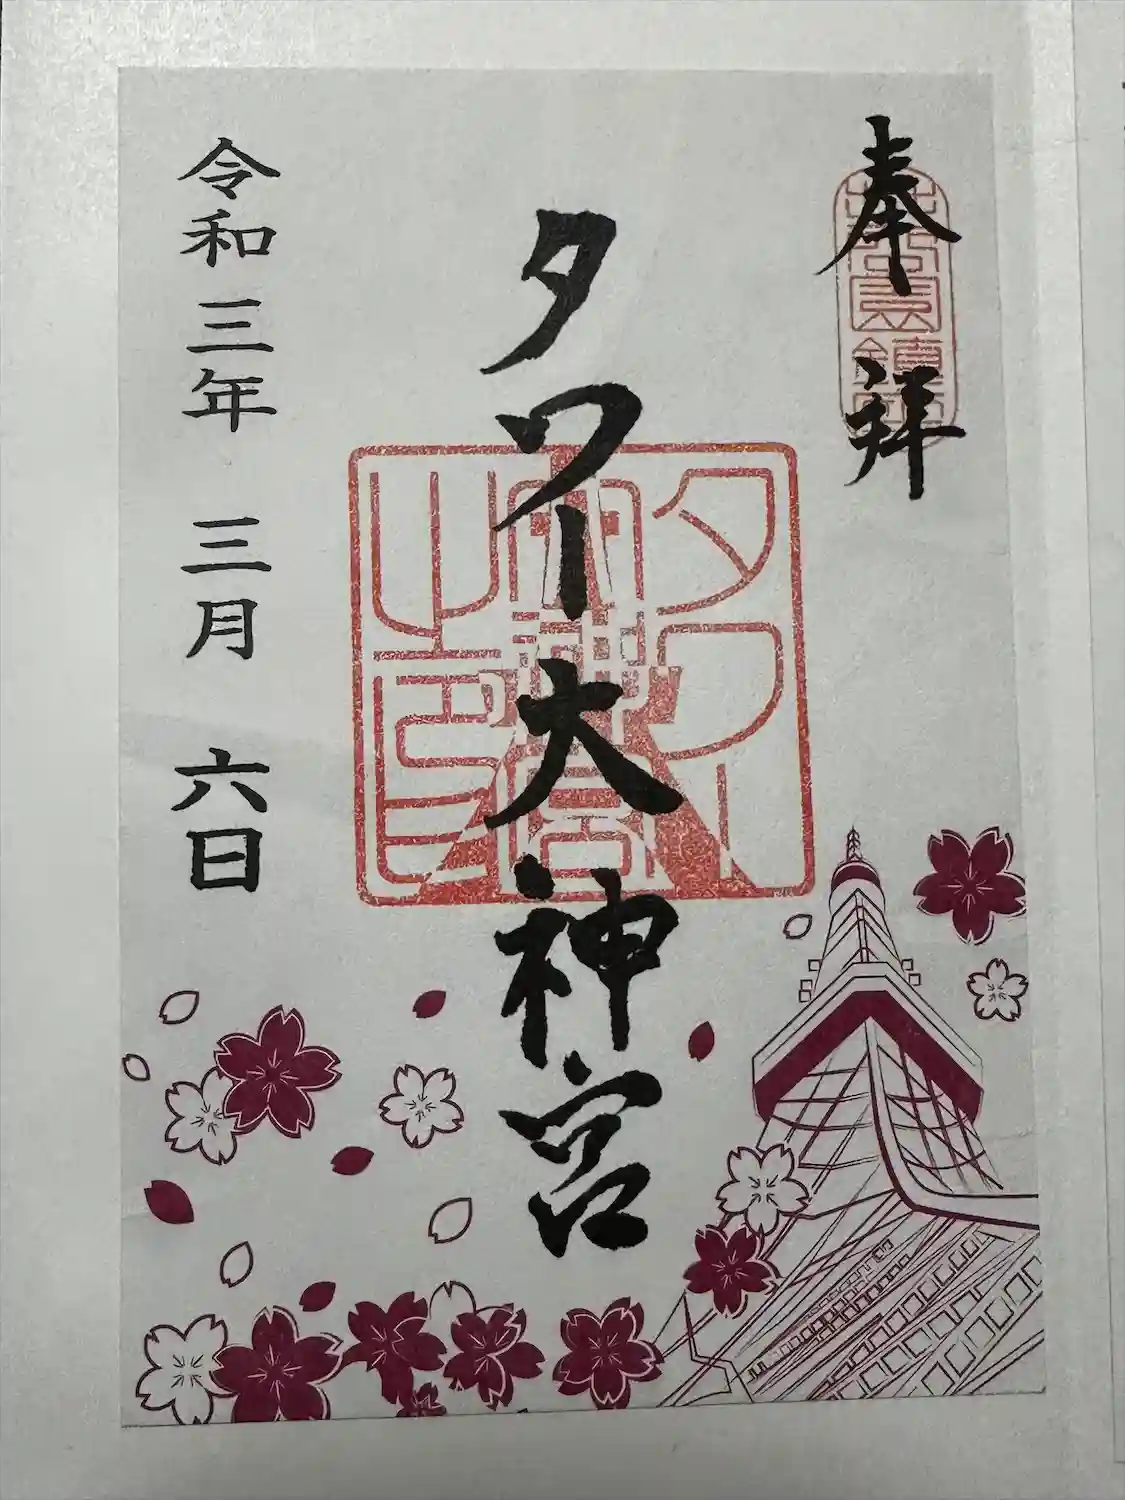 奉拝
タワー大神宮
令和三年 三月 六日
タワー
大神宮
之印